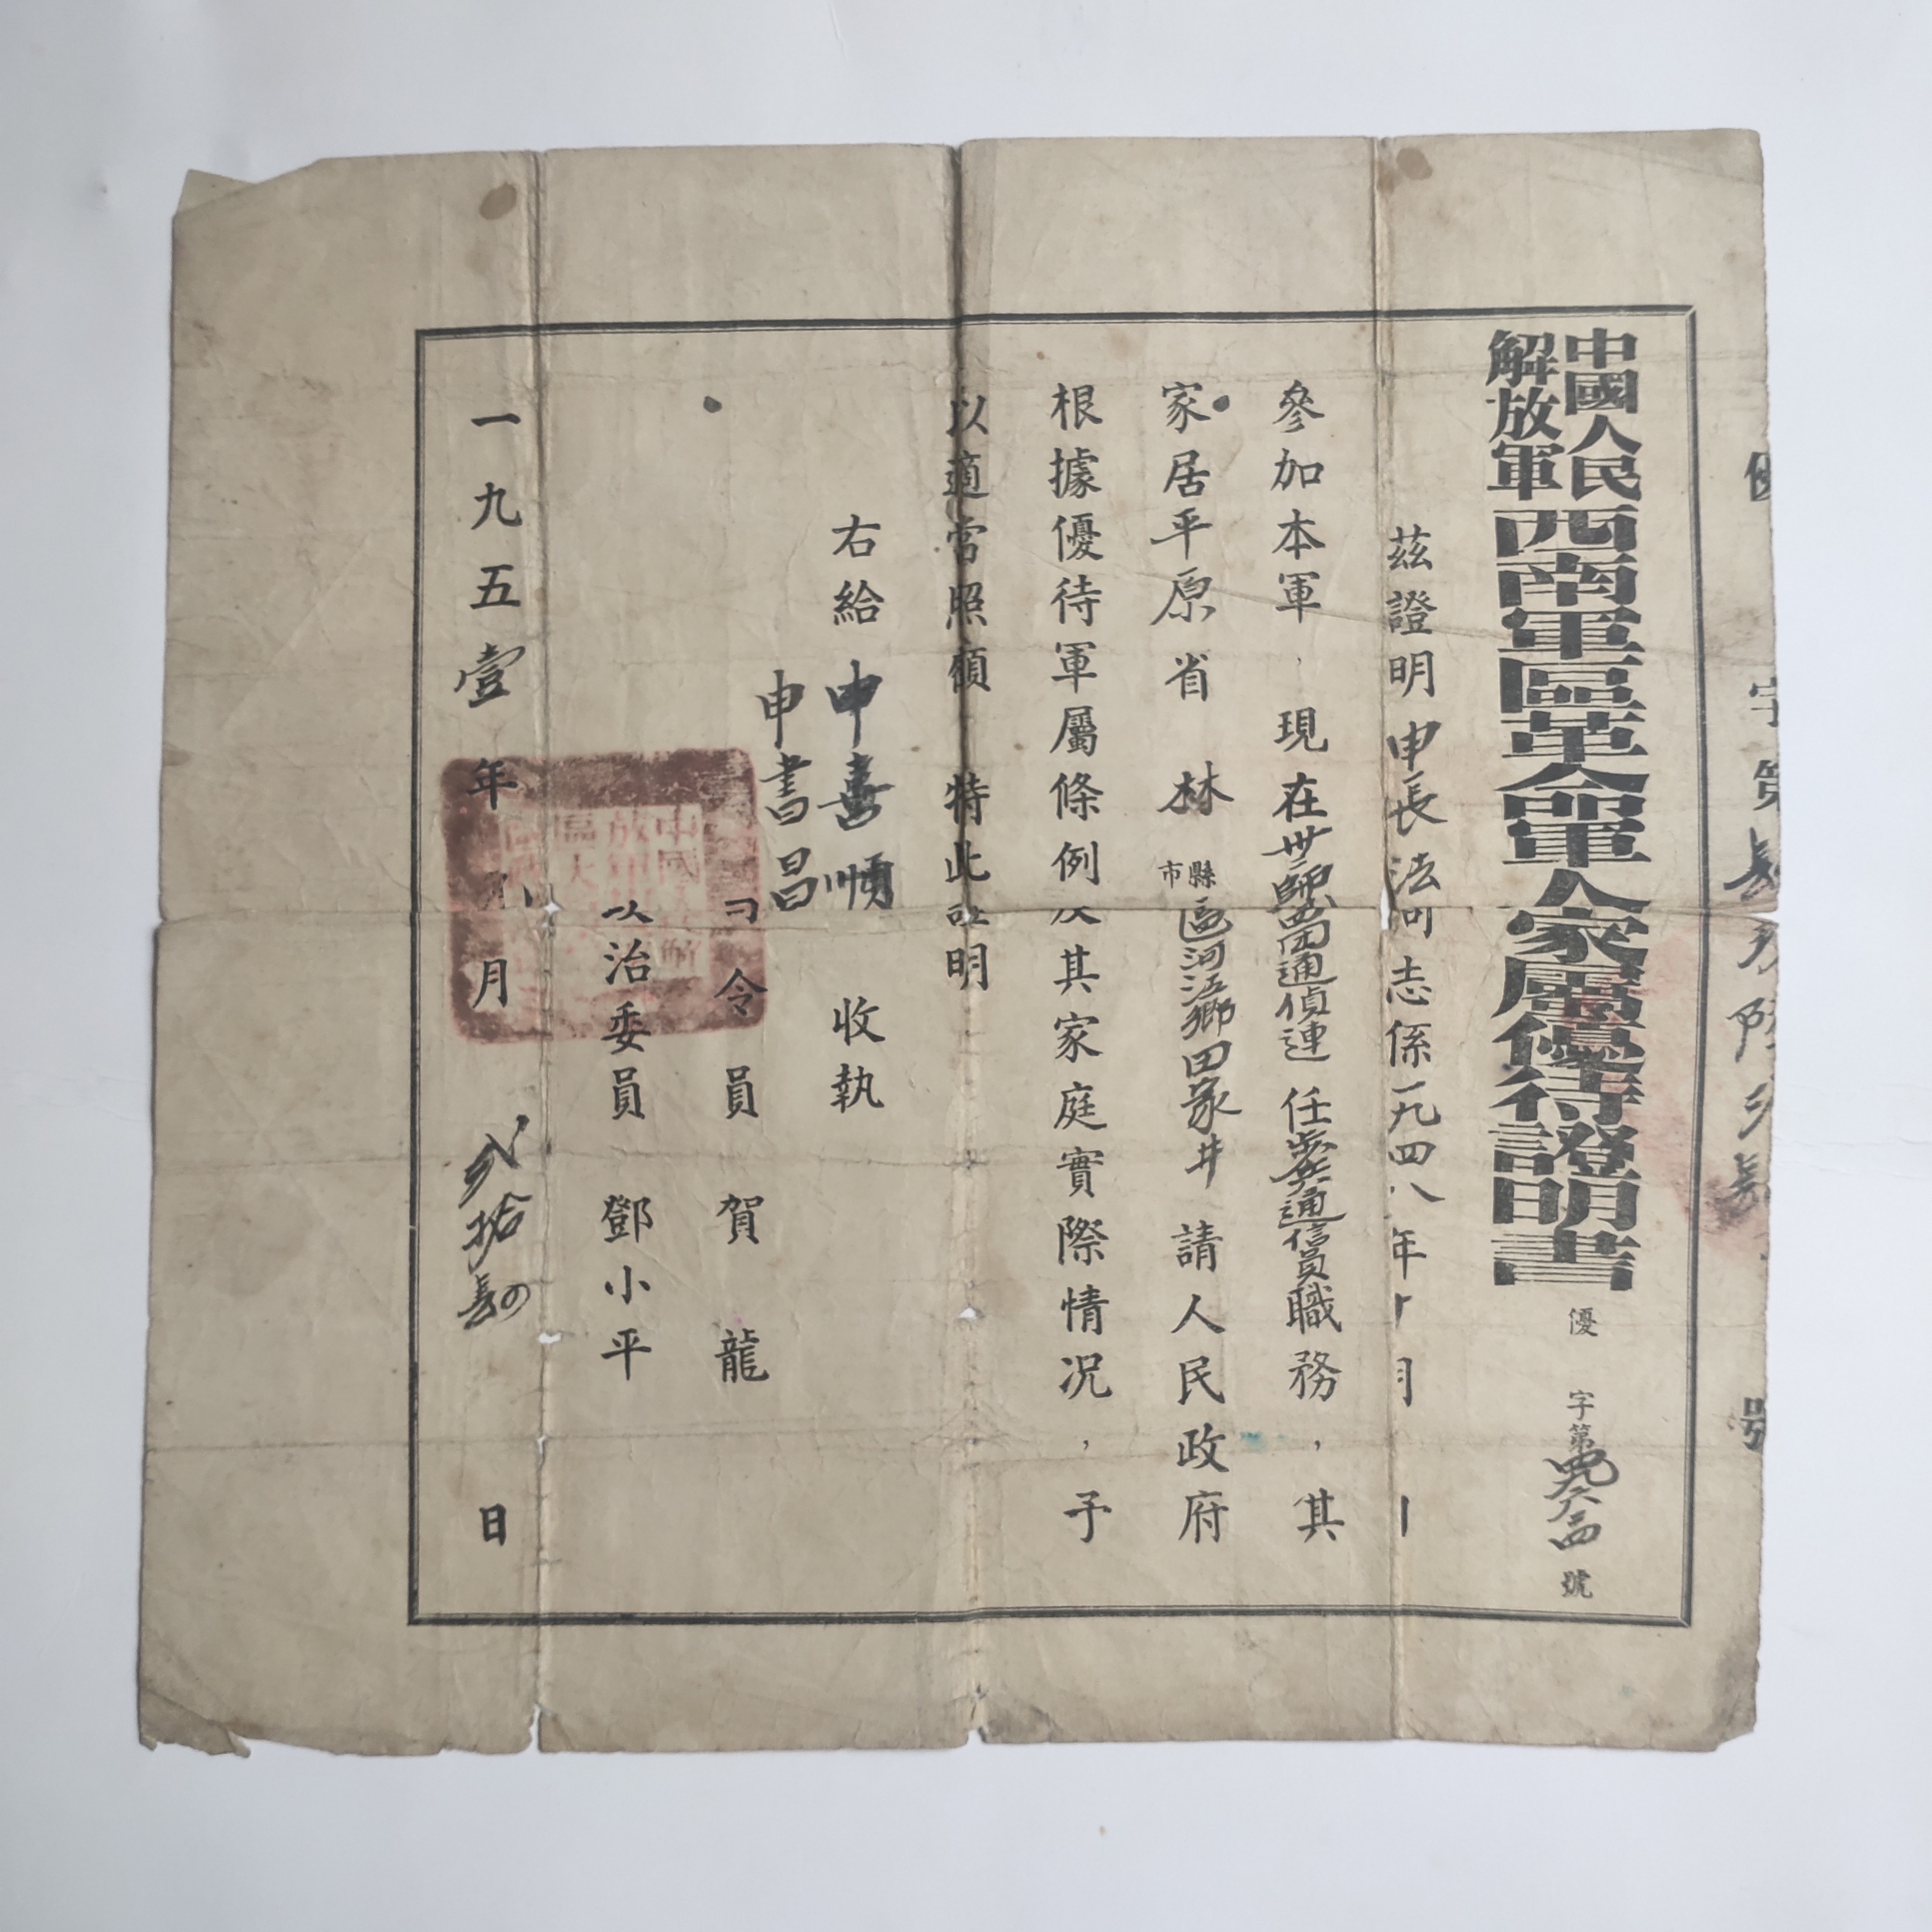 字第
號
中國人民
解放軍
西南軍區革命軍人家屬優待證明書
優 字第 號
茲證明申長法同志係一九四八年十月
參加本軍,現在卅一師 通偵連任 通信員職務,其
家居平原省林縣市 區河 鄉田家井請人民政府
根據優待軍屬條例及其家庭實際情況,予
以適當照顧 特此証明
右給申喜順
申書昌
收執
司令員 賀龍
政治委員 鄧小平
一九五壹年 月 日